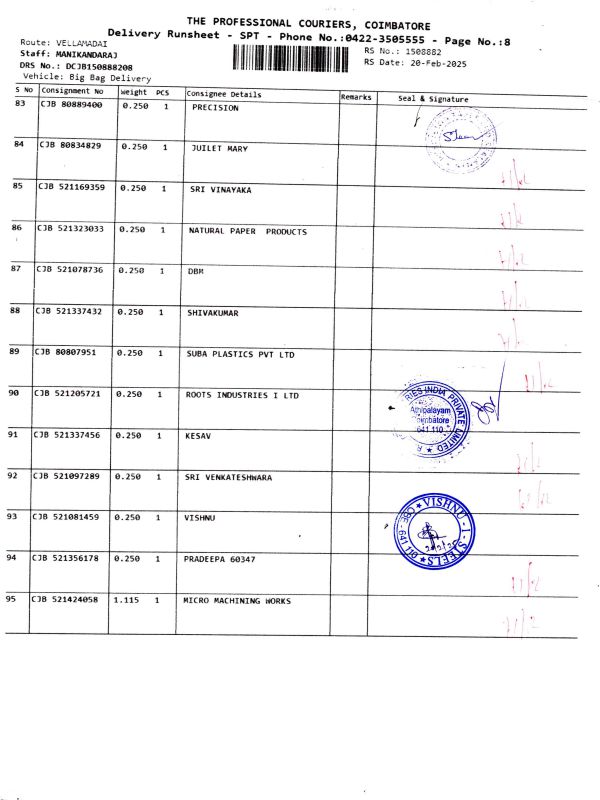 THE PROFESSIONAL COURIERS, COIMBATORE
Delivery Runsheet - SPT - Phone No.:0422-3505555 - Page No.:8
Route: VELLAMADAI
RS No.: 1508882
Staff: MANIKANDARAJ
RS Date: 20-Feb-2025
DRS No.: DCJB150888208
Vehicle: Big Bag Delivery
S No Consignment No Weight PCS Consignee Details Remarks Seal & Signature
83 CJB 80889400 0.250 1 PRECISION
84 CJB 80834829 0.250 1 JUILET MARY
85 CJB 521169359 0.250 1 SRI VINAYAKA
86 CJB 521323033 0.250 1 NATURAL PAPER PRODUCTS
87 CJB 521078736 0.250 1 DBM
88 CJB 521337432 0.250 1 SHIVAKUMAR
89 CJB 80807951 0.250 1 SUBA PLASTICS PVT LTD
90 CJB 521205721 0.250 1 ROOTS INDUSTRIES I LTD
RIES INDIA PRIVATE LIMITED
Athipalayam
Coimbatore
641 110
91 CJB 521337456 0.250 1 KESAV
92 CJB 521097289 0.250 1 SRI VENKATESHWARA
93 CJB 521081459 0.250 1 VISHNU
VISHNU-I-STEELS
CBE-641 110
94 CJB 521356178 0.250 1 PRADEEPA 60347
95 CJB 521424058 1.115 1 MICRO MACHINING WORKS